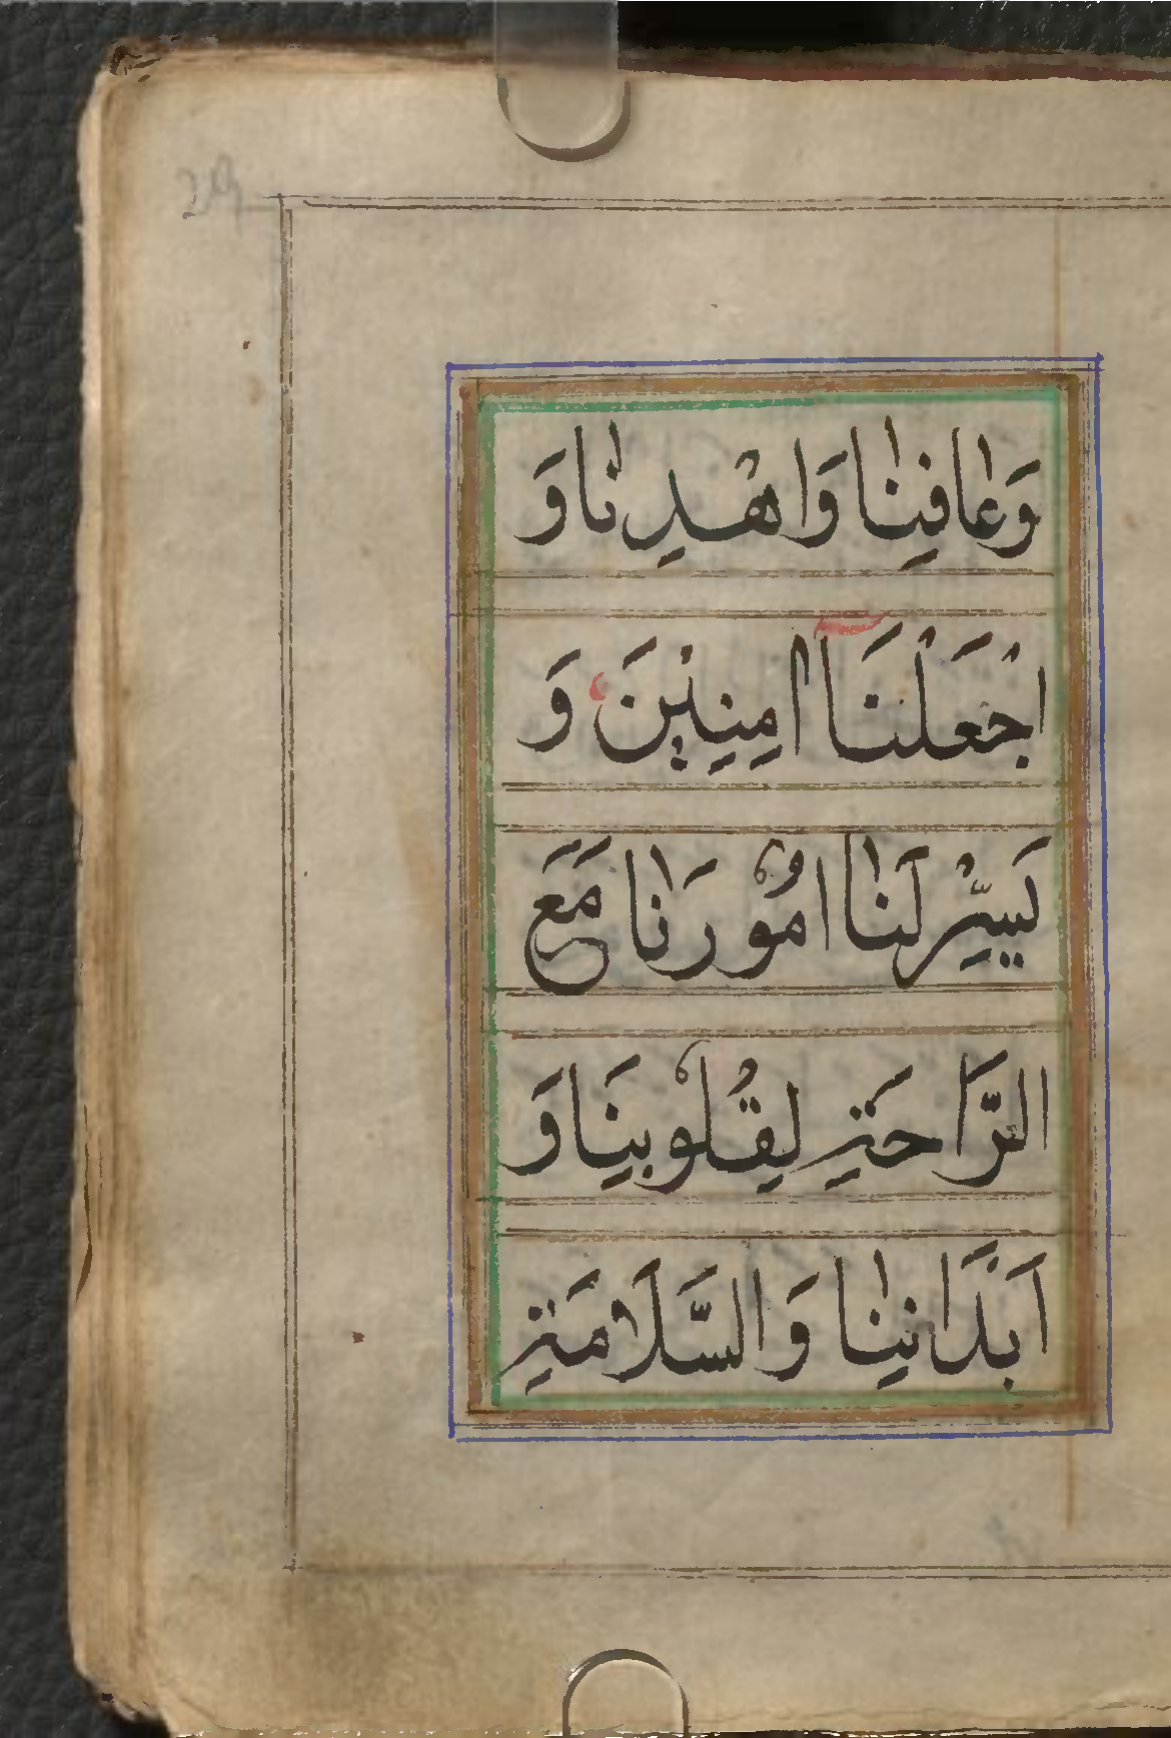 29
وَعٰافِنٰا وَاهْدِنٰا وَ
اجْعَلْنَا اٰمِنِيْنَ وَ
يَسِّرْ لَنٰا اُمُوْرَنٰا مَعَ
الرَّاحَةِ لِقُلُوْبِنَا وَ
اَبْدَانِنٰا وَالسَّلَامَةِ